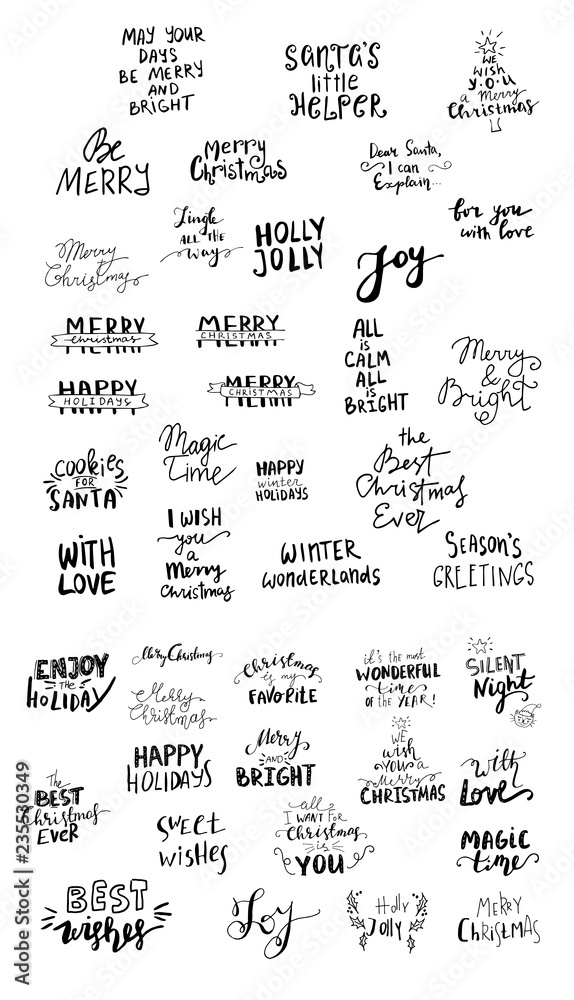 MAY YOUR
DAYS
BE MERRY
AND
BRIGHT
SANTA'S
little
HELPER
WE
wish
y·o·u
a Merry
Christmas
Be
MERRY
Merry
Christmas
Dear Santa,
I can
Explain...
Merry
Christmas
Jingle
ALL THE
Way
HOLLY
JOLLY
Joy
for you
with love
MERRY
christmas
MERRY
CHRISTMAS
HAPPY
HOLIDAYS
MERRY
CHRISTMAS
ALL
is
CALM
ALL
is
BRIGHT
Merry
&
Bright
Cookies
FOR
SANTA
Magic
Time
HAPPY
winter
HOLIDAYS
the
Best
Christmas
Ever
WITH
LOVE
I WISH
you
a
Merry
Christmas
WINTER
wonderlands
SEASON'S
GREETINGS
ENJOY
THE
HOLIDAY
Merry Christmas
Merry
Christmas
Christmas
is my
FAVORITE
it's the most
WONDERFUL
time
OF THE YEAR!
SILENT
Night
The
BEST
Christmas
EVER
HAPPY
HOLIDAYS
Merry
AND
BRIGHT
WE
wish
YOU a
Merry
CHRISTMAS
with
Love
SWEET
wishes
all
I WANT FOR
Christmas
is
YOU
MAGIC
time
BEST
wishes
Joy
Holly
Jolly
MERRY
CHRISTMAS
Adobe Stock | #235530349
Adobe Stock